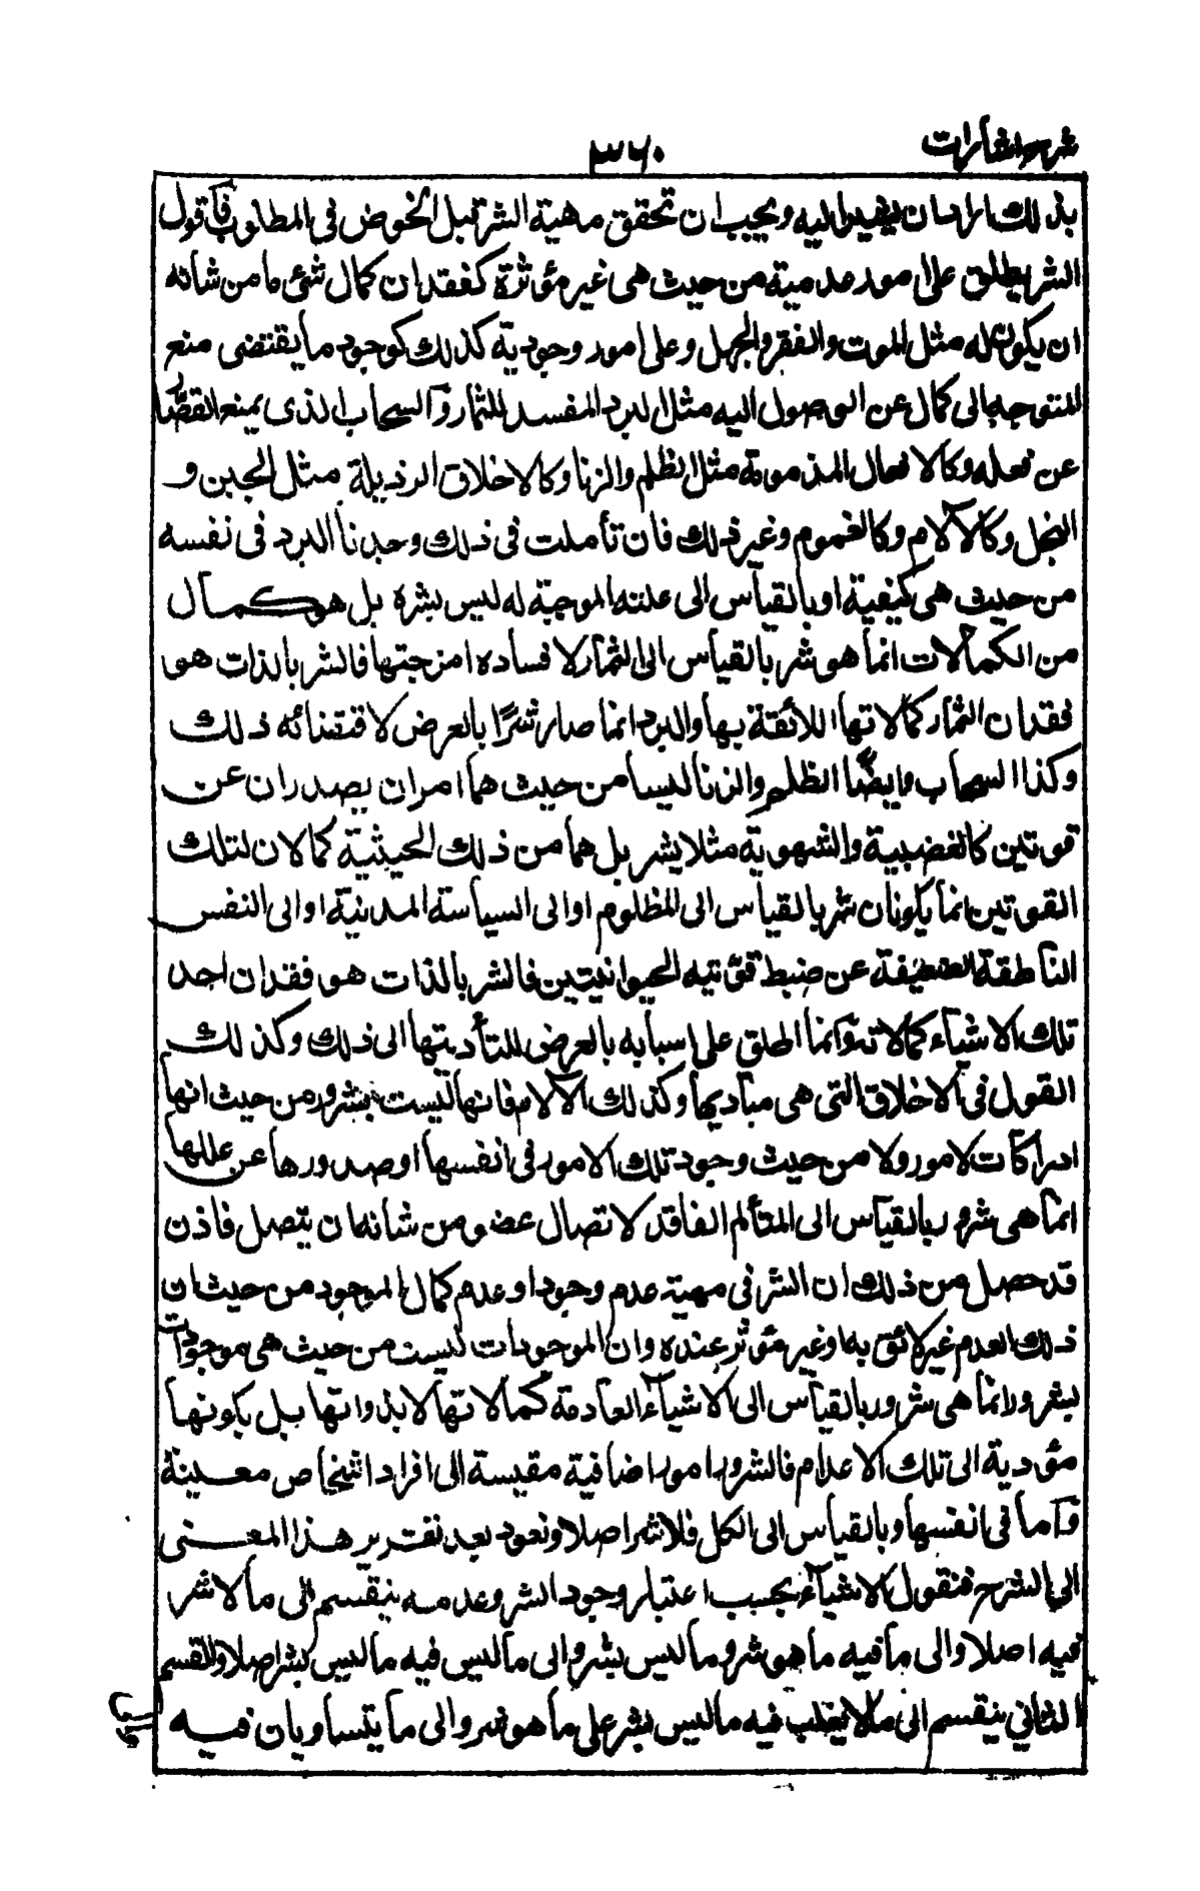 شرح اشارات
٣٦٠
بذلك اراد ان يشير اليه ويجب ان تحقق مهية الشر قبل الخوض فى المطلوب فأقول
الشر يطلق على امور عدمية من حيث هى غير مؤثرة كفقدان كمال شئ ما من شأنه
ان يكون له مثل الموت والفقر والجهل وعلى امور وجودية كذلك كوجود ما يقتضى منع
المتوجه الى كمال عن الوصول اليه مثل البرد المفسد للثمار والسحاب الذى يمنع القصّار
عن فعله وكالافعال المذمومة مثل الظلم والزنا وكالاخلاق الرذيلة مثل الجبن و
البخل وكالآلام وكالغموم وغير ذلك فان تأملت فى ذلك وجدنا البرد فى نفسه
من حيث هى كيفية او بالقياس الى علته الموجبة له ليس بشر بل هو كمال
من الكمالات انما هو شر بالقياس الى الثمار لافساده امزجتها فالشر بالذات هو
فقدان الثمار كمالاتها اللائقة بها والبرد انما صار شرًا بالعرض لاقتضائه ذلك
وكذا السحاب وايضًا الظلم والزنا ليسا من حيث هما امران يصدران عن
قوتين كالغضبية والشهوية مثلا بشر بل هما من ذلك الحيثية كمالان لتلك
القوتين انما يكونان شر بالقياس الى المظلوم او الى السياسة المدنية او الى النفس
الناطقة الضعيفة عن ضبط قوّتيه الحيوانيتين فالشر بالذات هو فقدان احد
تلك الاشياء كمالاته وانما اطلق على اسبابه بالعرض للتأديتها الى ذلك وكذلك
القول فى الاخلاق التى هى مباديها وكذلك الآلام فانها ليست بشرور من حيث انها
ادراكات لامور ولا من حيث وجود تلك الامور فى انفسها او صدورها عن عللها
انما هى شرور بالقياس الى المتألم الفاقد لاتصال عضو من شانه ان يتصل فاذن
قد حصل من ذلك ان الشر فى مهية عدم وجود او عدم كمال الموجود من حيث ان
ذلك العدم غير لائق به او غير مؤثر عنده وان الموجودات ليست من حيث هى موجودات
بشرور انما هى شرور بالقياس الى الاشياء العادمة كمالاتها لا بذواتها بل بكونها
مؤدية الى تلك الاعدام فالشرور امور اضافية مقيسة الى افراد اشخاص معينة
واما فى انفسها وبالقياس الى الكل فلا شر اصلا ونعود بعد تقرير هذا المعنى
الى الشرح فنقول الاشياء بحسب اعتبار وجود الشر وعدمه ينقسم الى ما لا شر
فيه اصلا والى ما فيه ما هو شر وما ليس بشر والى ما ليس فيه ما ليس بشر اصلا والقسم
الثانى ينقسم الى ما لا يغلب فيه ما ليس بشر على ما هو شر والى ما يتساويان فيه